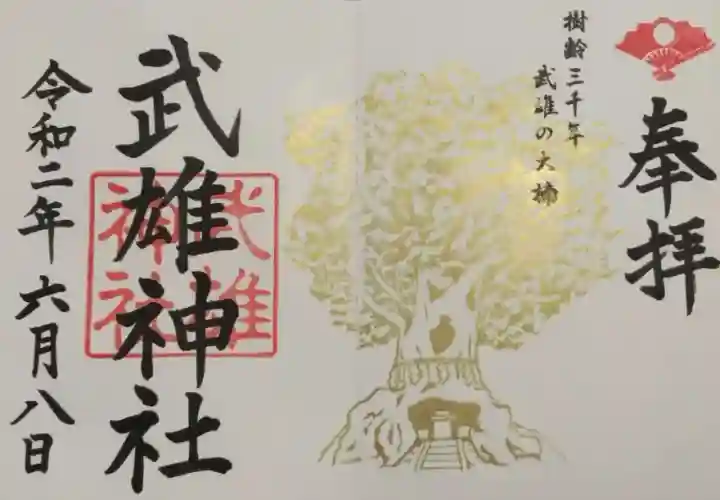 奉拝
樹齢三千年
武雄の大楠
武雄神社
武雄
神社
令和二年六月八日